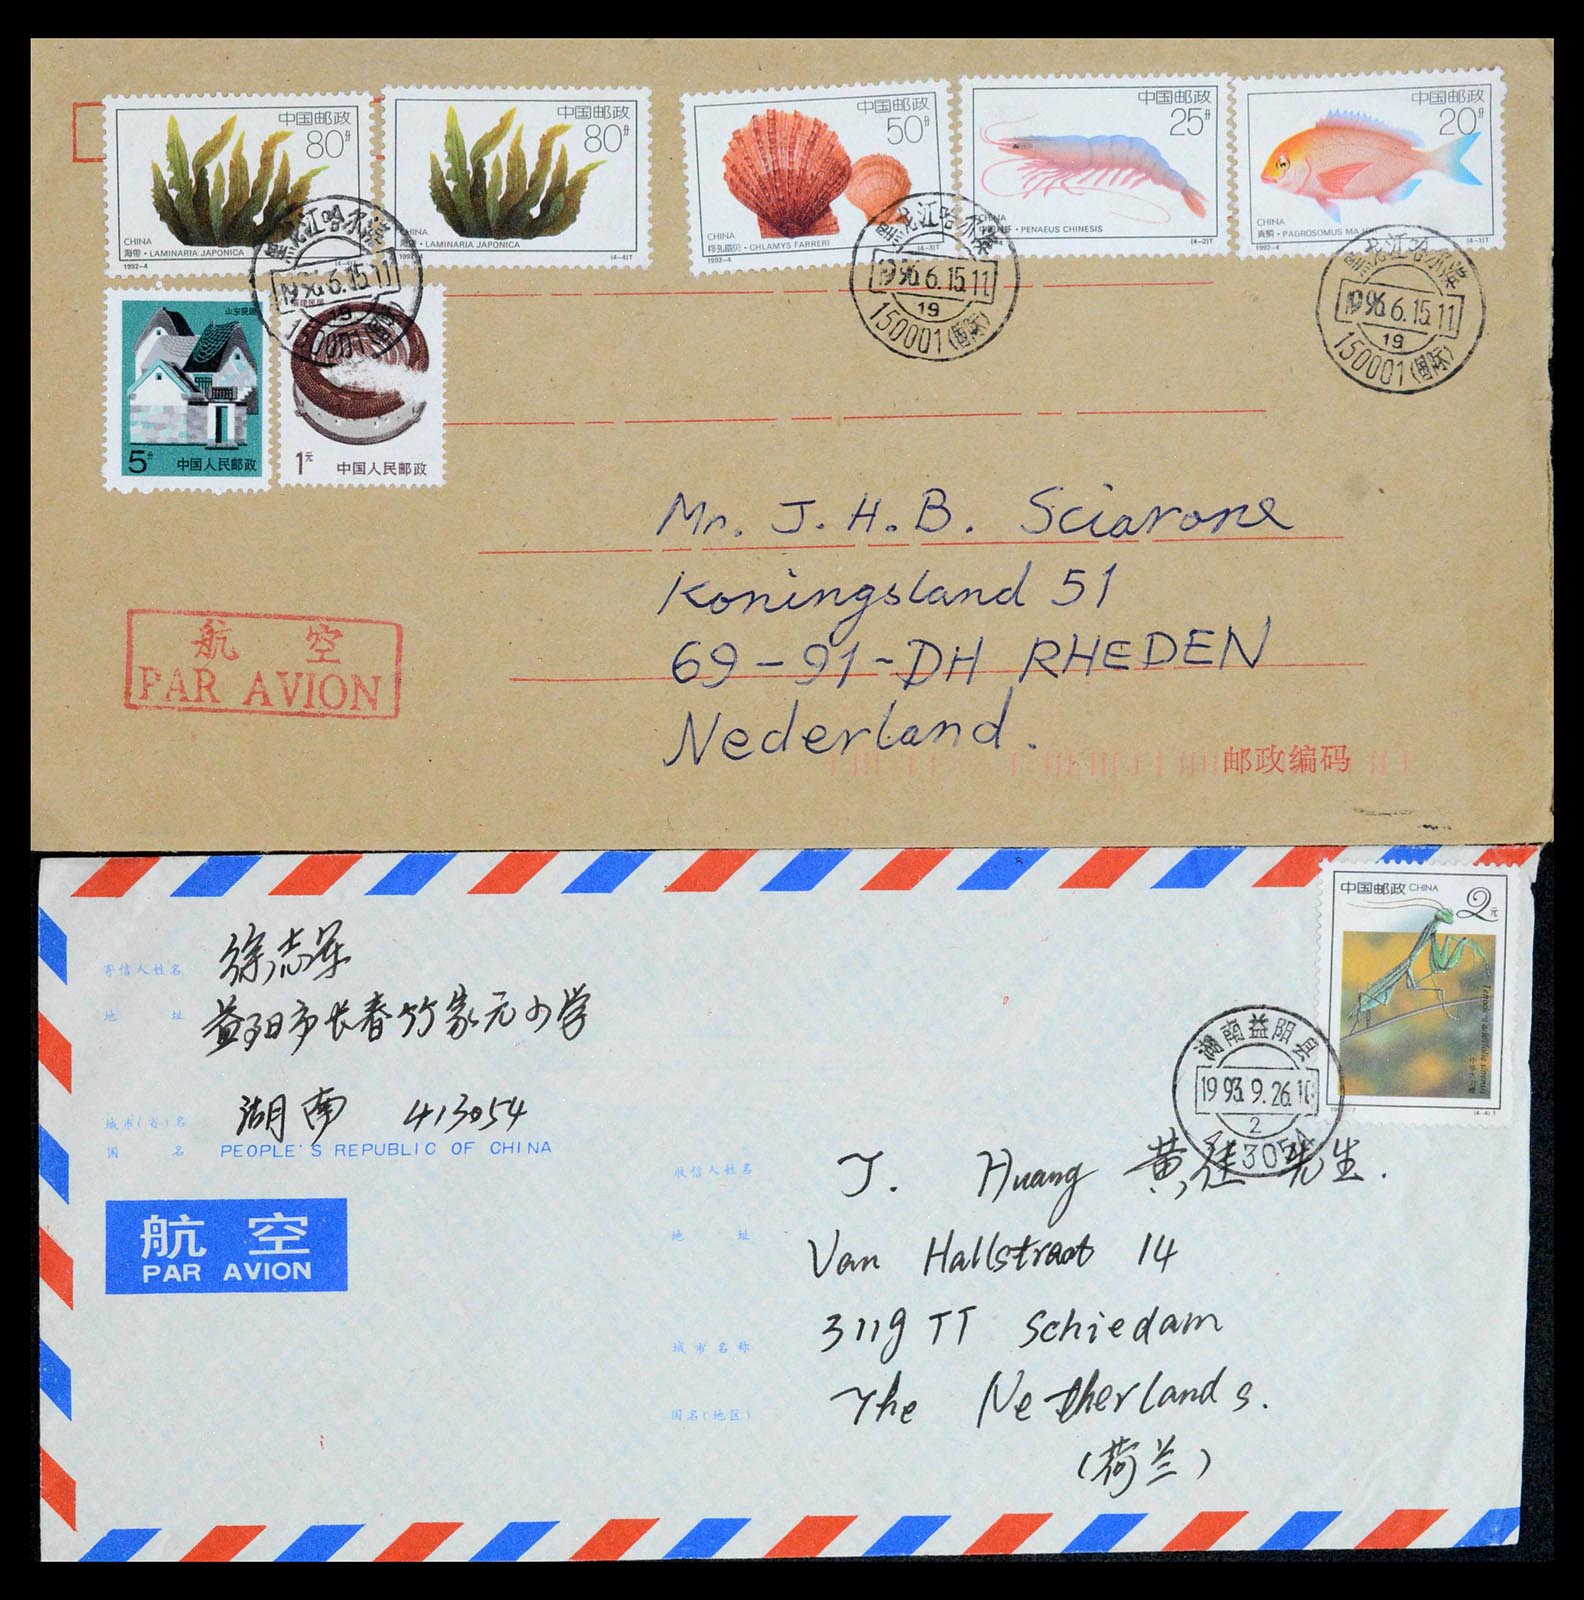 中国邮政
80分
CHINA
海带·LAMINARIA JAPONICA
1992-4 (4-4)T
中国邮政
80分
CHINA
海带·LAMINARIA JAPONICA
1992-4 (4-4)T
中国邮政
50分
CHINA
栉孔扇贝·CHLAMYS FARRERI
1992-4 (4-3)T
中国邮政
25分
CHINA
PENAEUS CHINESIS
(4-2)T
中国邮政
20分
CHINA
真鲷·PAGROSOMUS MAJOR
1992-4 (4-1)T
山东民居
5分 中国人民邮政
福建民居
1元 中国人民邮政
黑龙江哈尔滨
1996.6.15.11
19
150001(国际)
黑龙江哈尔滨
1996.6.15.11
19
150001(国际)
黑龙江哈尔滨
1996.6.15.11
19
150001(国际)
Mr. J. H. B. Sciarone
Koningsland 51
69-91-DH RHEDEN
Nederland.
航 空
PAR AVION
邮政编码
中国邮政 CHINA 2元
(4-4)T
湖南益阳县
1993.9.26.10
2
寄信人姓名 徐志军
地 址 益阳市长春竹家元小学
城市(省)名 湖南 413054
国 名 PEOPLE'S REPUBLIC OF CHINA
航 空
PAR AVION
收信人姓名 J. Huang 黄 先生.
地 址 Van Hallstraat 14
3119 TT Schiedam
城市名称
The Netherlands.
国名(地区)
(荷兰)